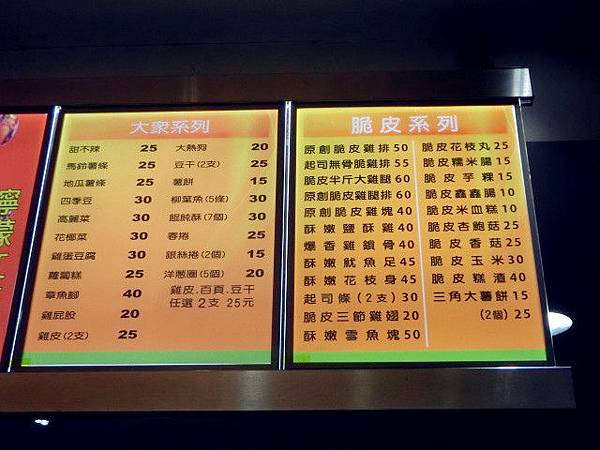 大衆系列
甜不辣 25
馬鈴薯條 25
地瓜薯條 25
四季豆 30
高麗菜 30
花椰菜 30
雞蛋豆腐 30
蘿蔔糕 25
章魚腳 40
雞屁股 20
雞皮(2支) 25
大熱狗 20
豆干(2支) 25
薯餅 15
柳葉魚(5條) 30
餛飩酥(7個) 30
春捲 25
銀絲捲(2個) 15
洋蔥圈(5個) 20
雞皮.百頁.豆干
任選2支25元
脆皮系列
原創脆皮雞排50
起司無骨脆雞排55
脆皮半斤大雞腿60
原創脆皮雞腿排60
原創脆皮雞塊40
酥嫩鹽酥雞40
爆香雞鎖骨40
酥嫩魷魚足45
酥嫩花枝身45
起司條(2支)30
脆皮三節雞翅20
酥嫩雪魚塊50
脆皮花枝丸25
脆皮糯米腸15
脆皮芋粿15
脆皮鑫鑫腸10
脆皮米血糕10
脆皮杏鮑菇25
脆皮香菇25
脆皮玉米30
脆皮糕渣40
三角大薯餅15
(2個)25
檸檬